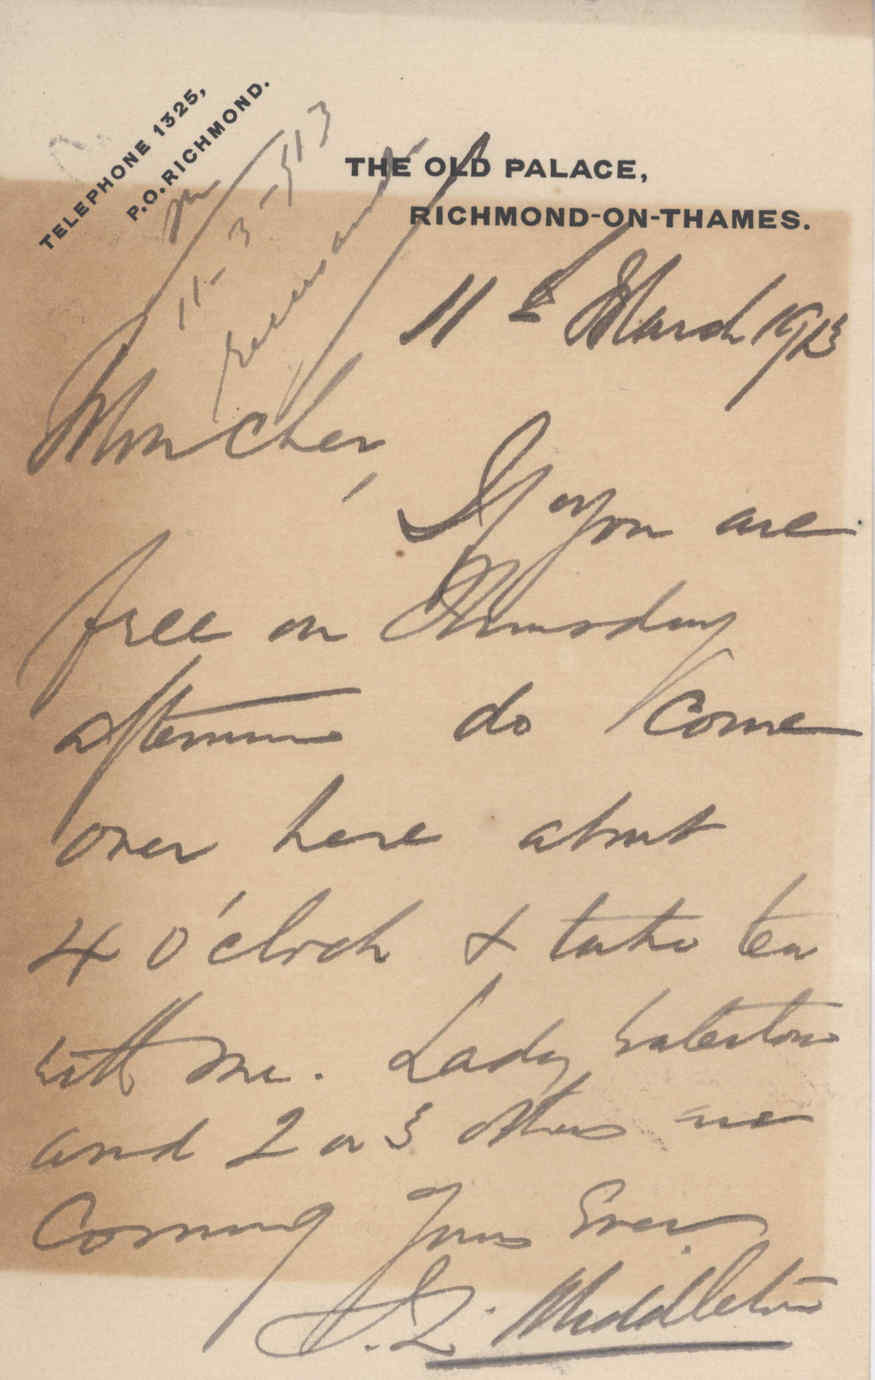 TELEPHONE 1325,
P.O. RICHMOND.
THE OLD PALACE,
RICHMOND-ON-THAMES.
11-3-913
11th March 1913
Mon cher,
If you are
free on Thursday
afternoon do come
over here about
4 O'clock & take tea
with me. Lady
and 2 or 3 others are
Coming Yours Ever
J. L. Middleton